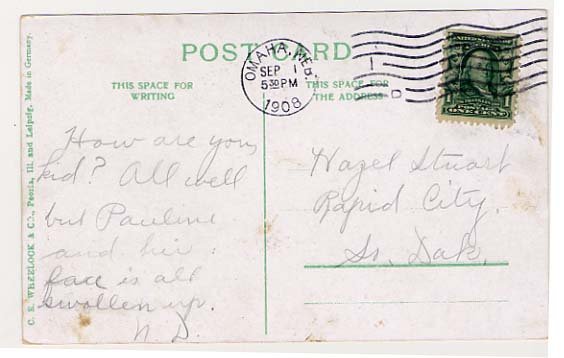 POST CARD
THIS SPACE FOR
WRITING
THIS SPACE FOR
THE ADDRESS
OMAHA, NEB.
SEP 1
5 30 PM
1908
1
D
ONE CENT
C. E. WHEELOCK & CO., Peoria, Ill. and Leipzig. Made in Germany.
How are you,
kid? All well
but Pauline
and her
face is all
swollen up.
N. D.
Hazel Stuart
Rapid City.
So. Dak.